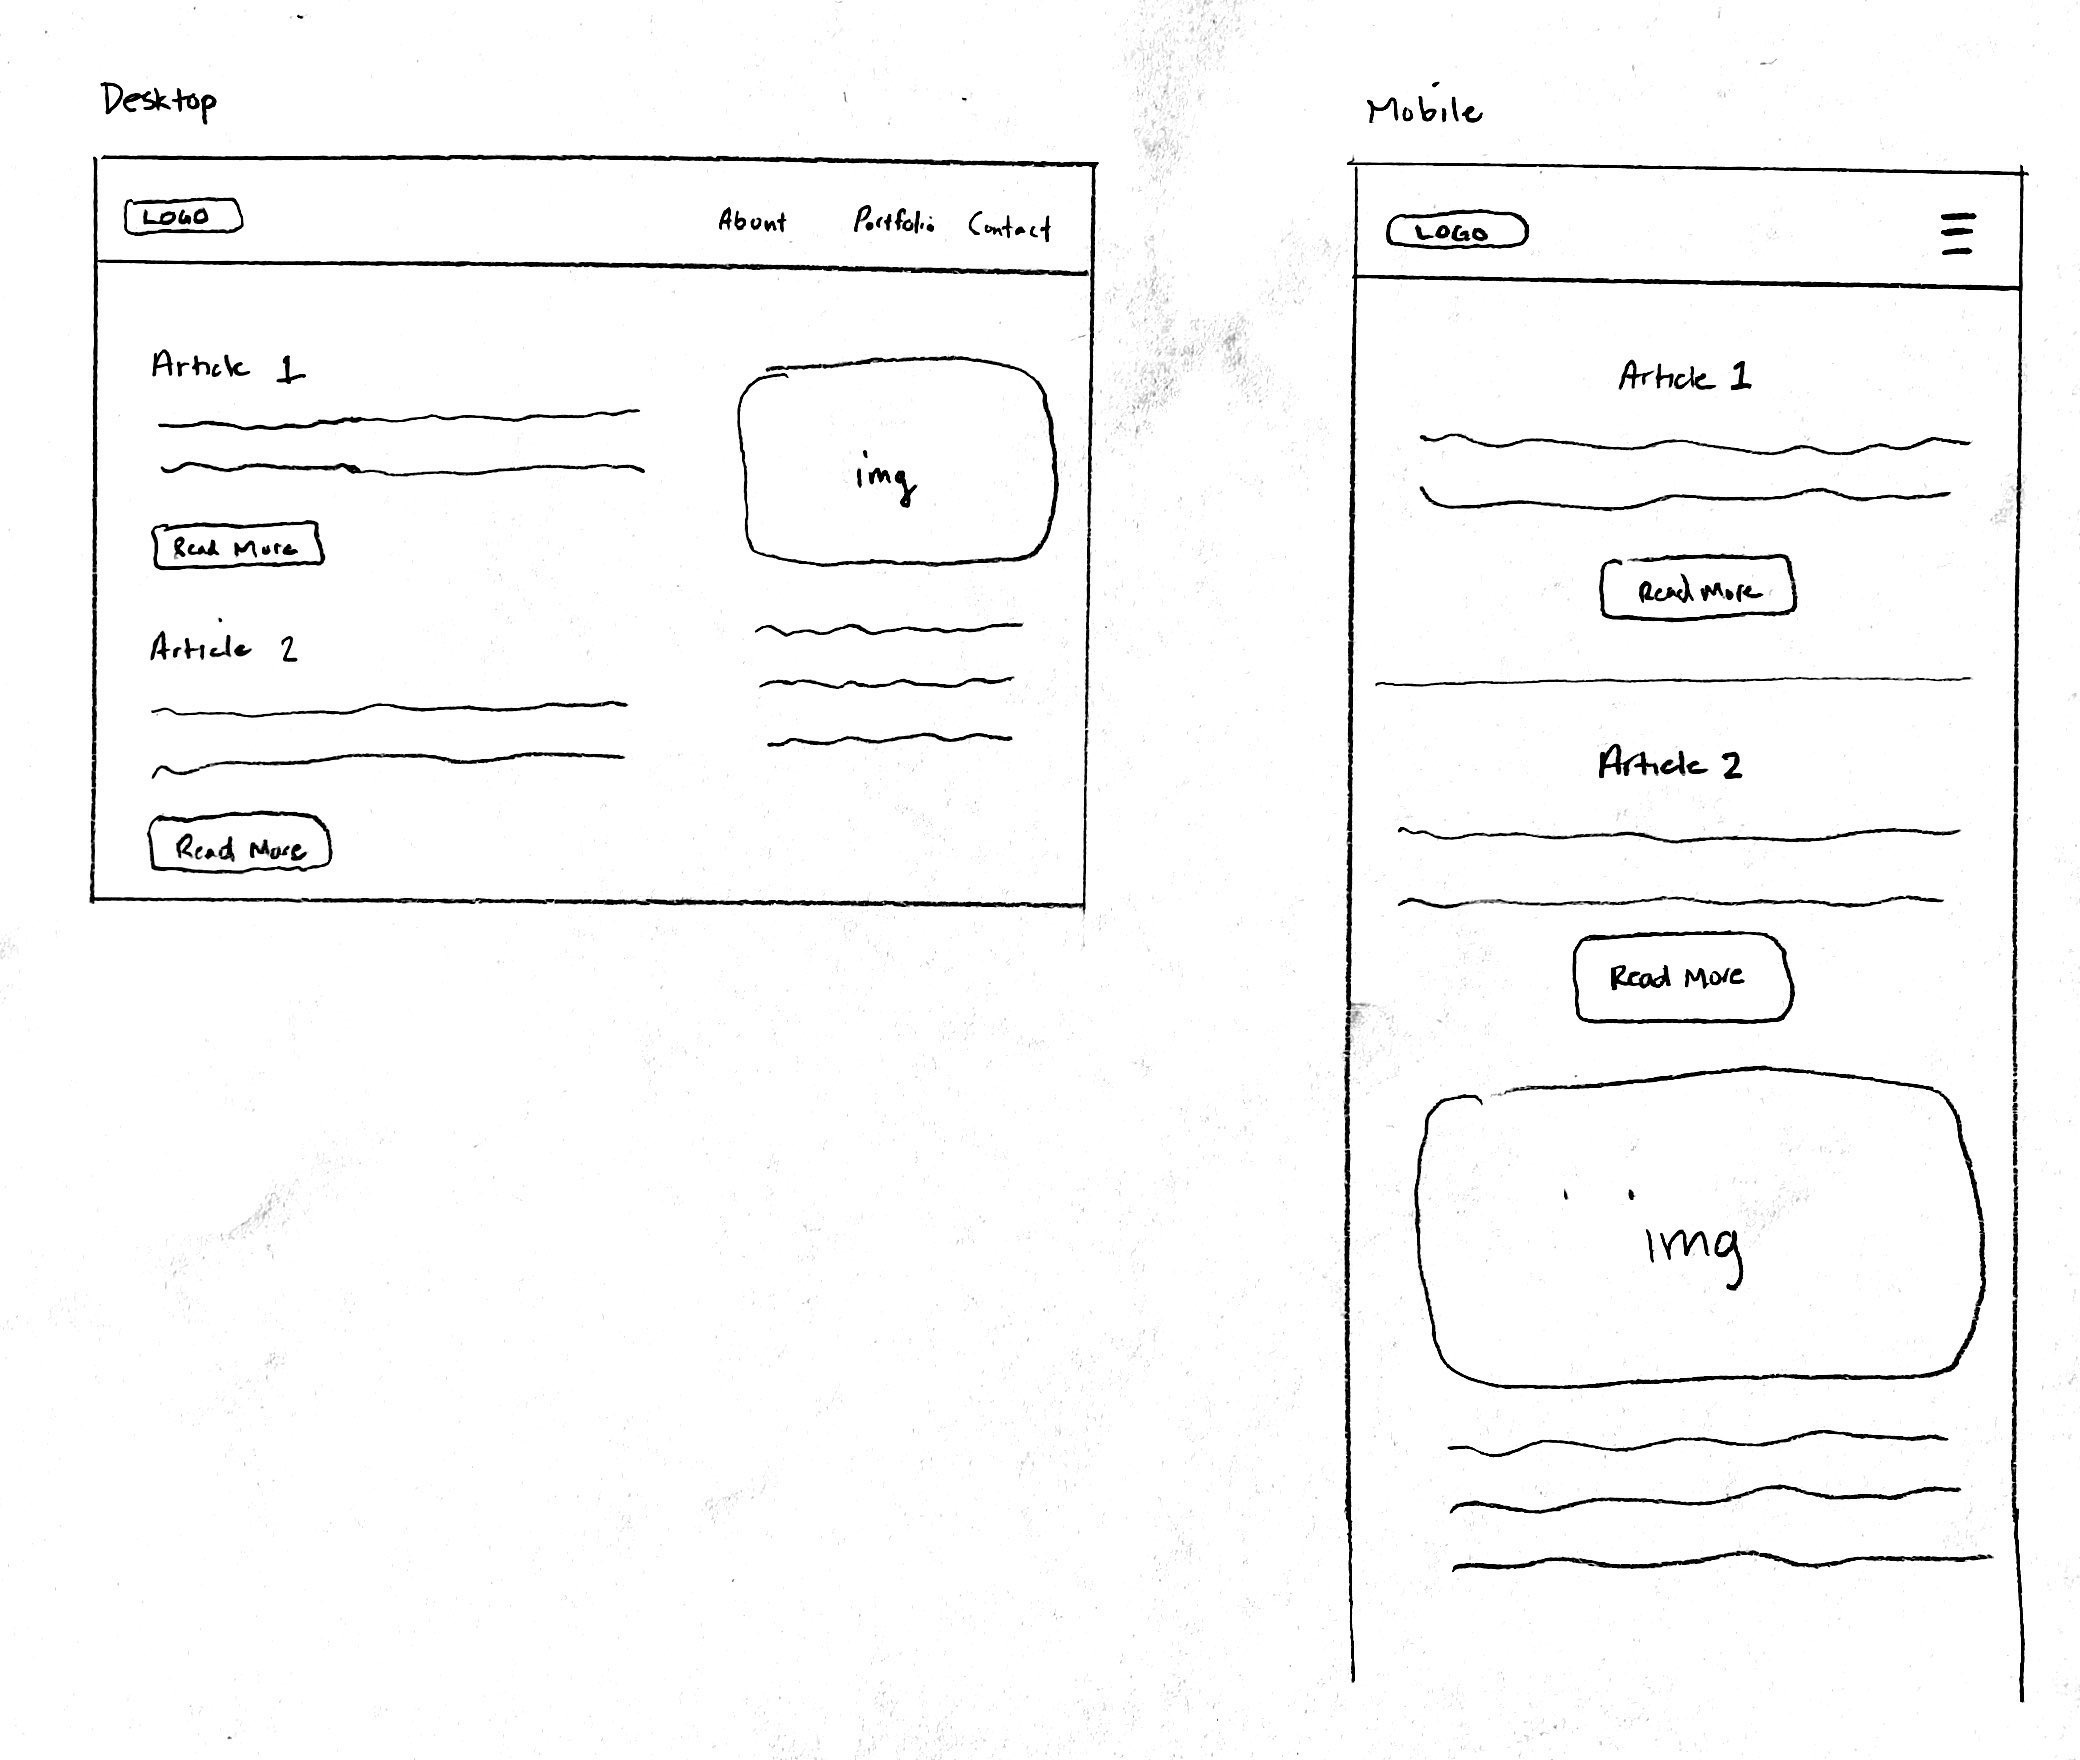 Desktop
LOGO
About Portfolio Contact
Article 1
Read More
img
Article 2
Read More
Mobile
LOGO
Article 1
Read More
Article 2
Read More
img